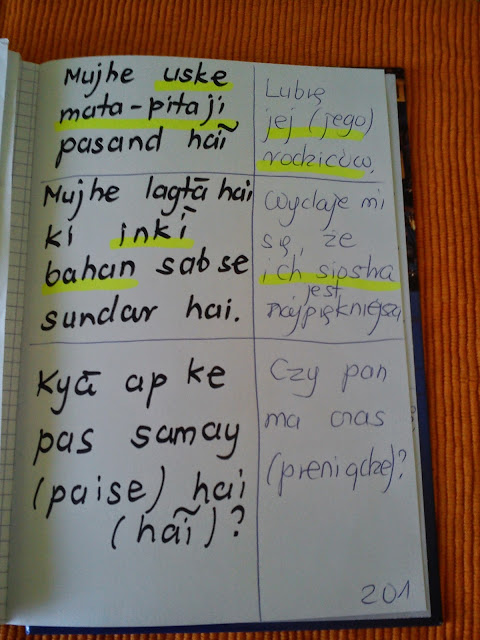 Mujhe uske
mata-pitaji
pasand haĩ
Lubię
jej (jego)
rodziców.
Mujhe lagtā hai
ki inkī
bahan sab se
sundar hai.
Wydaje mi
się, że
ich siostra
jest
najpiękniejsza
Kyā ap ke
pas samay
(paise) hai
(haĩ)?
Czy pan
ma czas
(pieniądze)?
201